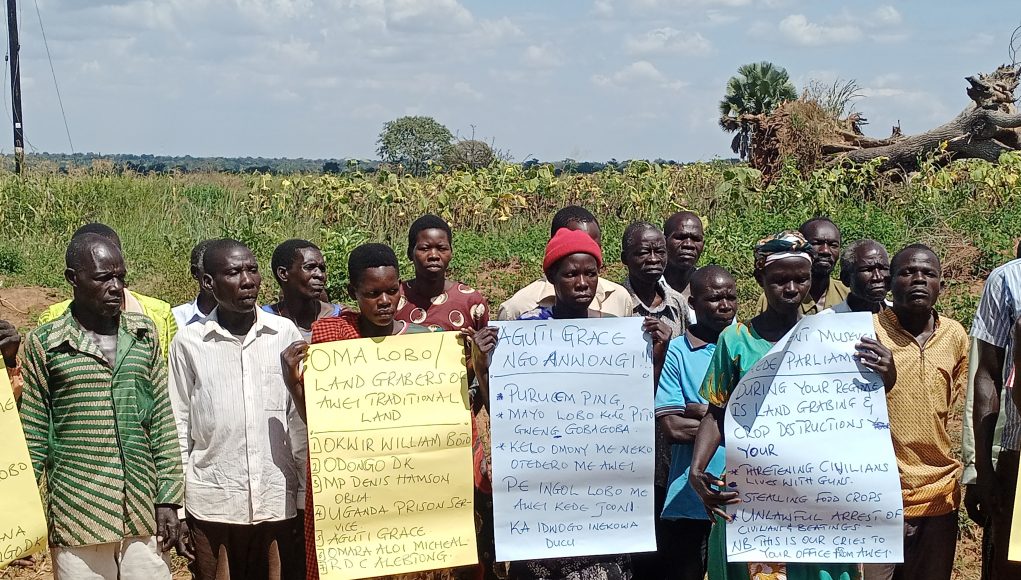 LOBO
WNA
NGO DK
OMA LOBO/
LAND GRABERS OF
AWEI TRADITIONAL
LAND
1 OKWIR WILLIAM BOTO
2 ODONGO DK
3 MP DENIS HAMSON
OBUA
4 UGANDA PRISON SER-
VICE.
5 AGUTI GRACE
6 OMARA ALOI MICHEAL
7 RDC ALEBTONG.
AGUTI GRACE
NGO ANWONGI!!
* PURU EM PING,
* MAYO LOBO KEDE PITO
GWENG GOBAGOBA.
* KELO OMONY ME NEKO
OTEDERO ME AWEI
PE INGOL LOBO ME
AWEI KEDE JOONI
KA IDWOGO INEKOWA
DUCU
MUSE
KEDE PARLIAM
DURING YOUR REGIME
IS LAND GRABING &
CROP DISTRUCTIONS
YOUR
* THRETENING CIVILIANS
LIVES WITH GUNS.
* STEALLING FOOD CROPS
* UNLAWFUL ARREST OF
CIVILIANS & BEATINGS
NB THIS IS OUR CRIES TO
YOUR OFFICE FROM AWEI